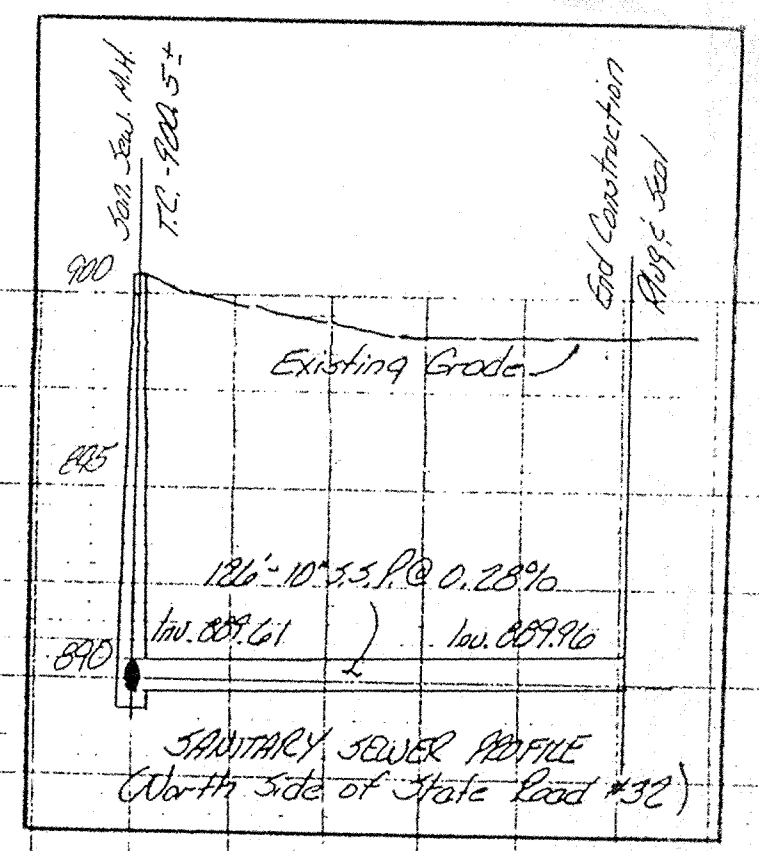 San. Sew. M.H.
T.C. - 900.5±
End Construction
Plug & Seal
900
Existing Grade
895
126'-10" S.S.P. @ 0.28%
Inv. 889.61
Inv. 889.96
890
SANITARY SEWER PROFILE
(North Side of State Road #32)